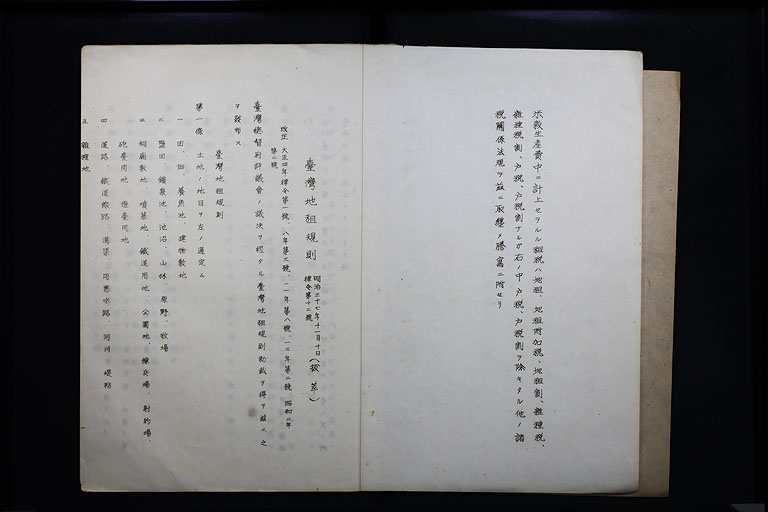 米穀生産費中ニ計上セラルル租税ハ地租、地租附加税、地租割、雜種税、
雜種税割、戸税、戸税割ナルガ右ノ中戸税、戸税割ヲ除キタル他ノ諸
税關係法規ヲ茲ニ取纏メ謄寫ニ附セリ
臺灣地租規則
明治三十七年十一月十日
律令第十二號
(拔萃)
改正 大正四年律令第一號、八年第三號、一一年第八號、一二年第二號 昭和二年
第二號
臺灣總督府評議會ノ議決ヲ經タル臺灣地租規則勅裁ヲ得テ茲ニ之
ヲ發布ス
臺灣地租規則
第一條 土地ノ地目ヲ左ノ通定ム
一 田、畑、養魚池、建物敷地
二 鹽田 鑛泉池 池沼、山林 原野、牧場
三 祠廟敷地 墳墓地、鐵道用地、公園地、練兵場、射的場、
砲臺用地、燈臺用地
四 道路 鐵道線路、溝渠、用惡水路 河川 堤防
五 雜種地